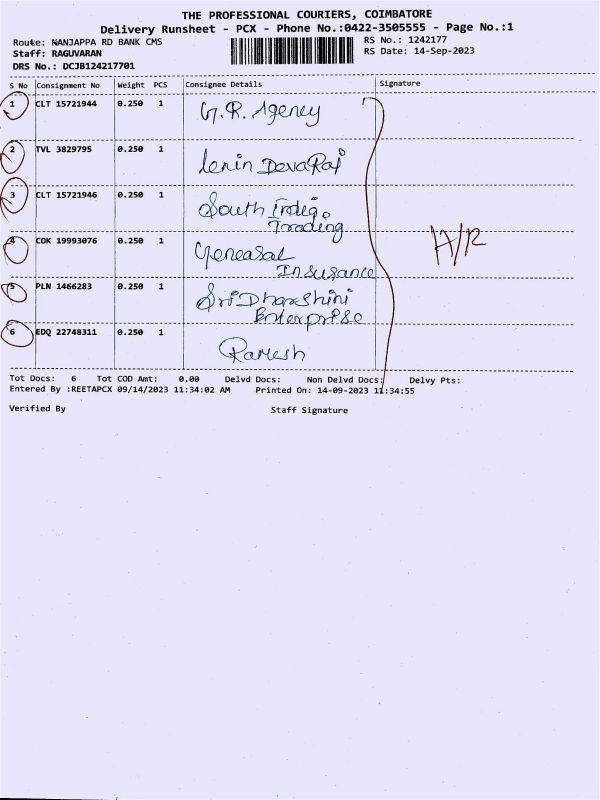 THE PROFESSIONAL COURIERS, COIMBATORE
Delivery Runsheet - PCX - Phone No.:0422-3505555 - Page No.:1
Route: NANJAPPA RD BANK CMS RS No.: 1242177
Staff: RAGUVARAN RS Date: 14-Sep-2023
DRS No.: DCJB124217701
S No Consignment No Weight PCS Consignee Details Signature
1 CLT 15721944 0.250 1 G.R. Agency
2 TVL 3829795 0.250 1 Lenin DevaRaj
3 CLT 15721946 0.250 1 South India
Trading
4 COK 19993076 0.250 1 Genearal
Insurance
A/R
5 PLN 1466283 0.250 1 Sri Dharshini
Enterprise
6 EDQ 22748311 0.250 1 Ramesh
Tot Docs: 6 Tot COD Amt: 0.00 Delvd Docs: Non Delvd Docs: Delvy Pts:
Entered By :REETAPCX 09/14/2023 11:34:02 AM Printed On: 14-09-2023 11:34:55
Verified By Staff Signature